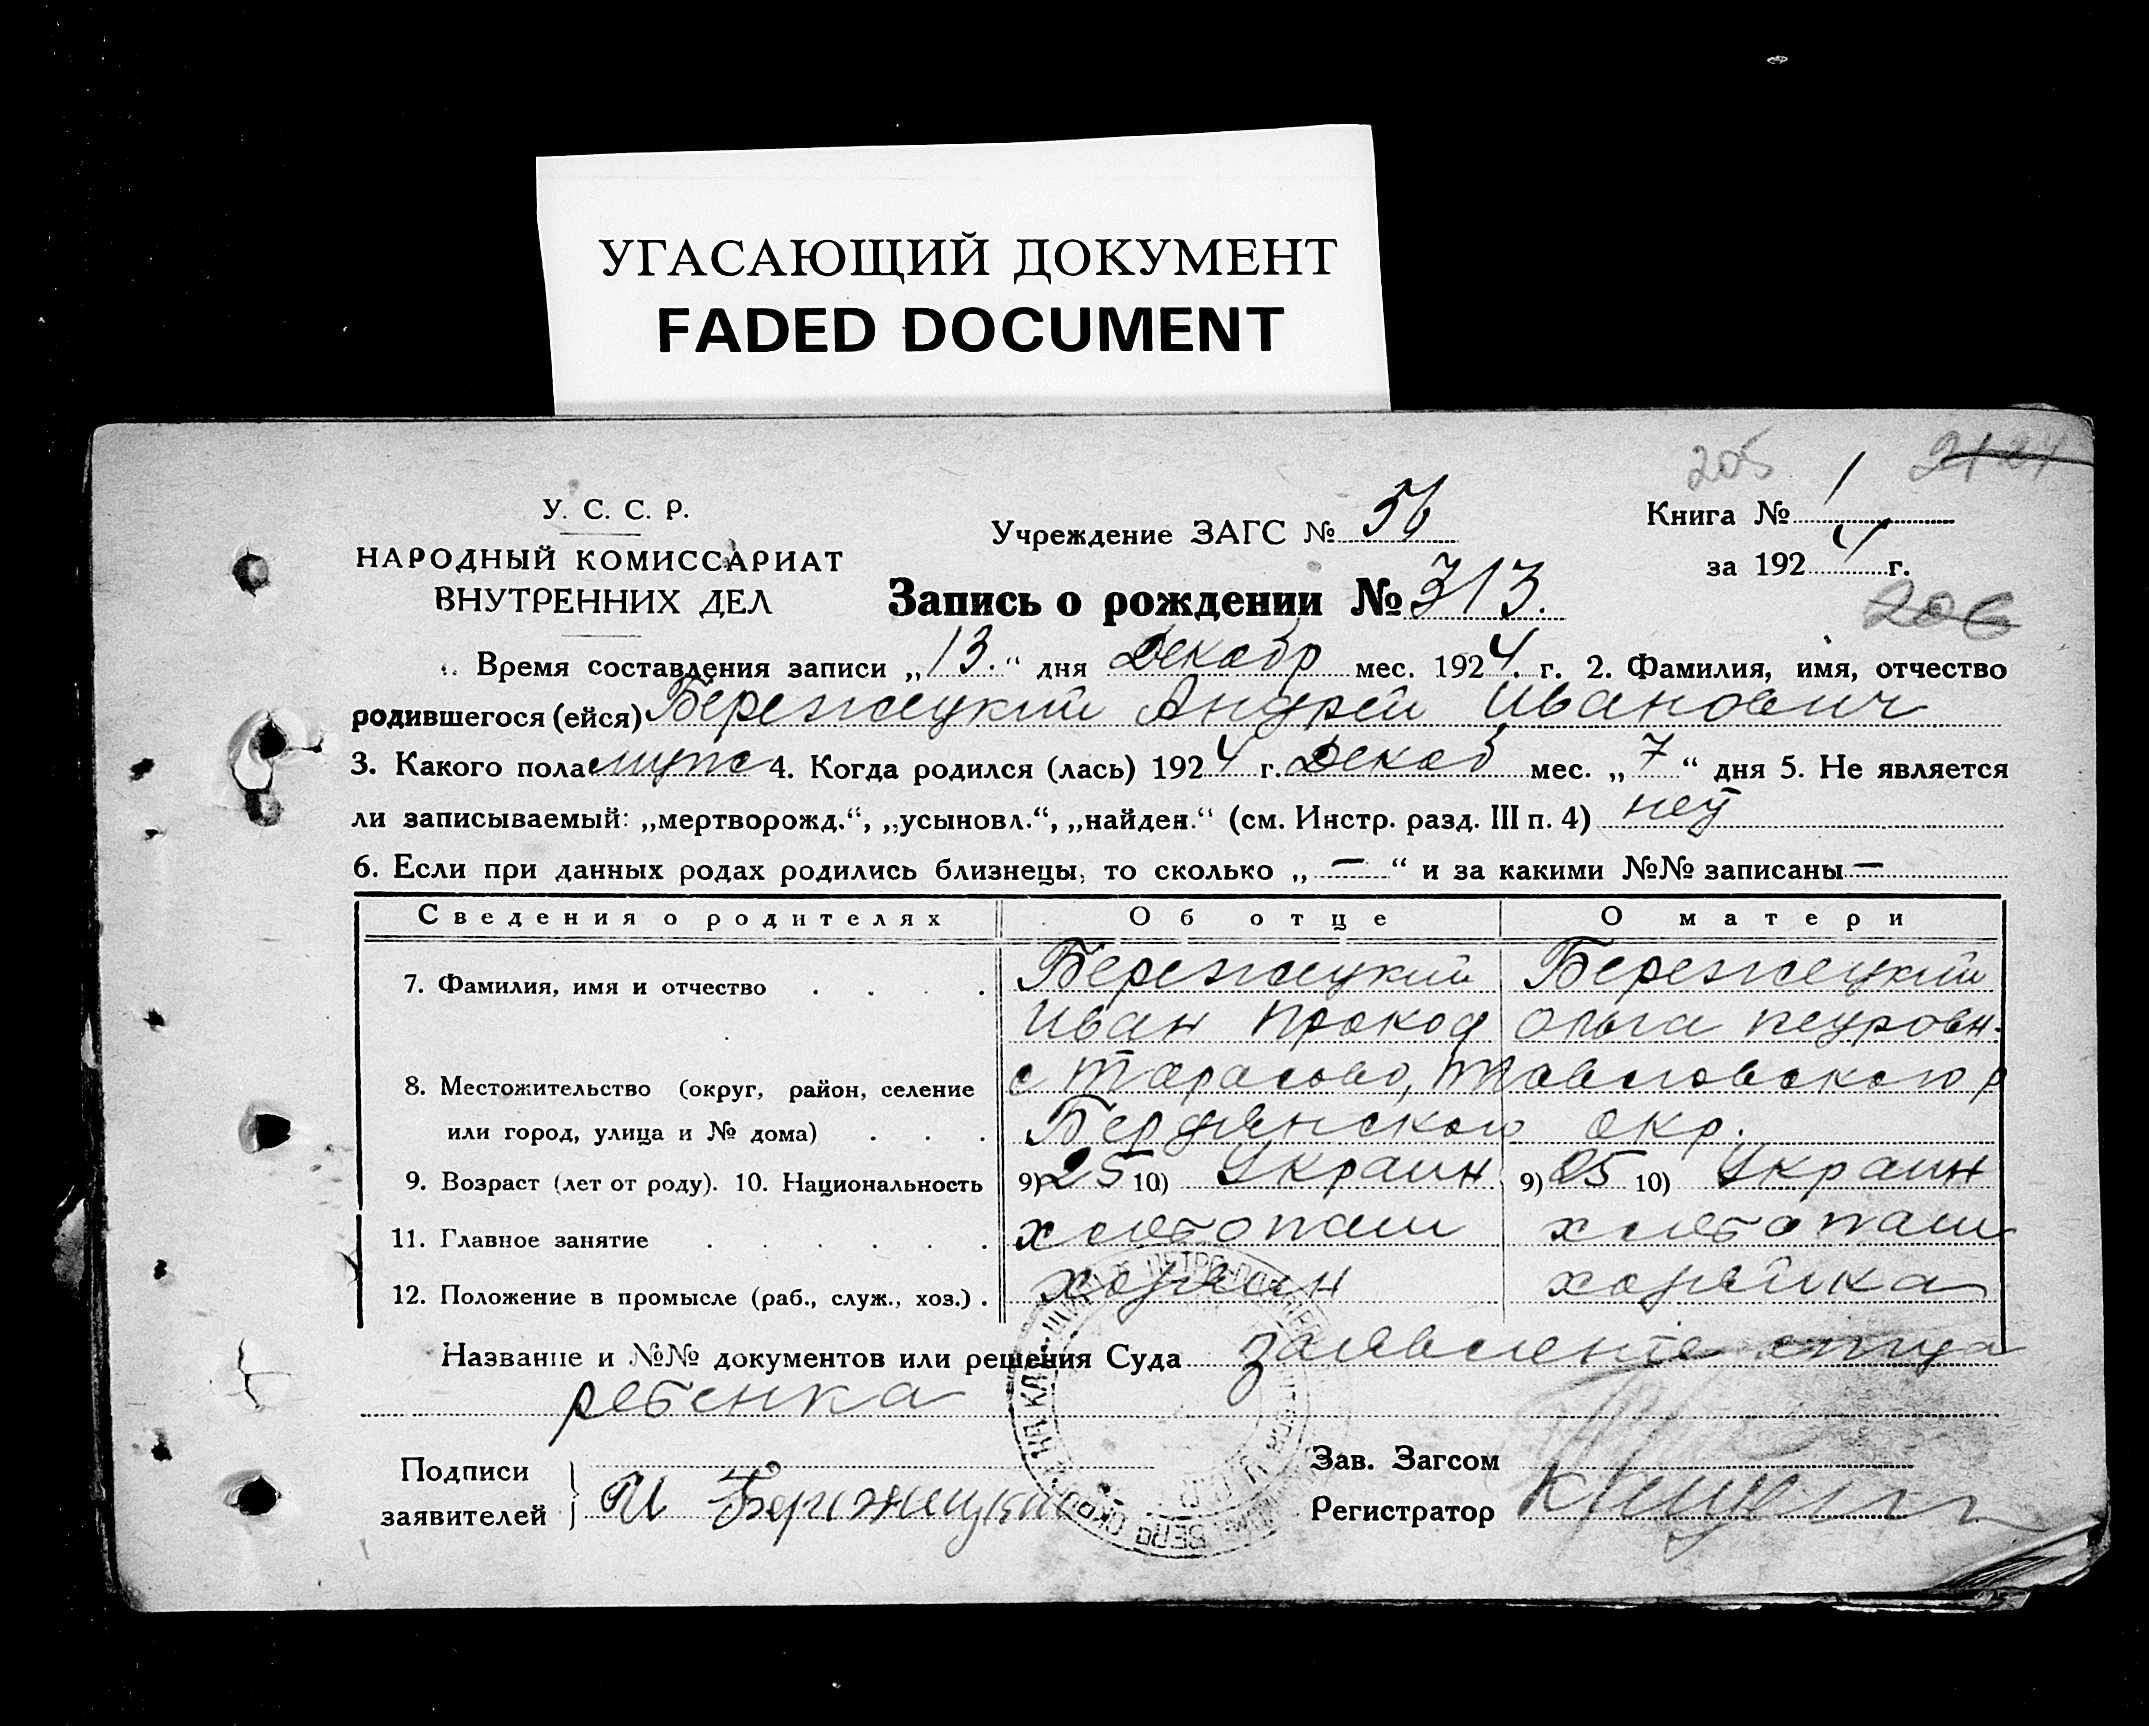 УГАСАЮЩИЙ ДОКУМЕНТ
FADED DOCUMENT
205 2121
У. С. С. Р.
НАРОДНЫЙ КОМИССАРИАТ
ВНУТРЕННИХ ДЕЛ
Учреждение ЗАГС № 56
Книга № 1
за 1924 г.
Запись о рождении № 313.
206
Время составления записи „13.“ дня Декабр мес. 1924 г. 2. Фамилия, имя, отчество
родившегося (ейся) Бережецкий Андрей Иванович
3. Какого пола муж 4. Когда родился (лась) 1924 г. Декаб мес. „7“ дня 5. Не является
ли записываемый: „мертворожд.“, „усыновл.“, „найден.“ (см. Инстр. разд. III п. 4) нет
6. Если при данных родах родились близнецы, то сколько „—“ и за какими №№ записаны —
Сведения о родителях Об отце О матери
7. Фамилия, имя и отчество Бережецкий Бережецкий
Иван Прокоф Ольга петровн.
8. Местожительство (округ, район, селение с Тарасово, р
или город, улица и № дома) Бердянского окр.
9. Возраст (лет от роду). 10. Национальность 9) 25 10) Украин 9) 25 10) Украин
11. Главное занятие хлебопаш хлебопаш
12. Положение в промысле (раб., служ., хоз.) хозяин хозяйка
Название и №№ документов или решения Суда заявление отца
ребенка
Подписи
заявителей И Бережецкий
Зав. Загсом
Регистратор